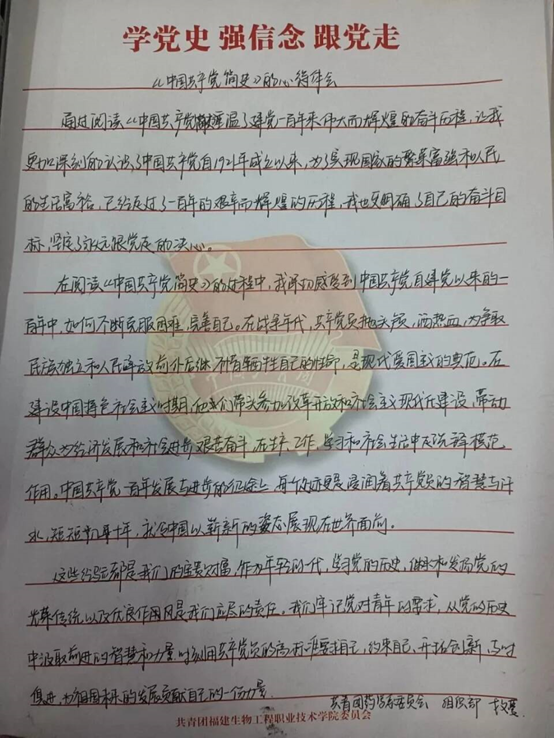 学党史 强信念 跟党走
《中国共产党简史》的心得体会
通过阅读《中国共产党 温了建党一百年来伟大而辉煌的奋斗历程，让我
更加深刻的认识了中国共产党自1921年成立以来，为了实现国家的繁荣富强和人民
的生活富裕，已经走过了一百年的艰辛而辉煌的历程，我也更明确了自己的奋斗目
标，坚定了永远跟党走的决心。
在阅读《中国共产党简史》的过程中，我深切感受到中国共产党自建党以来的一
百年中，如何不断克服困难，完善自己。在战争年代，共产党员抛头颅，洒热血，为争取
民族独立和人民解放前仆后继 不惜牺牲自己的性命，是现代爱国主义的典范。在
建设中国特色社会主义时期，他们带头参加改革开放和社会主义现代化建设，带动
群众为经济发展和社会进步艰苦奋斗，在生产、工作、学习和社会生活中 模范
作用。中国共产党一百年发展与进步的征途上，每个 更是浸润着共产党员的智慧与汗
水，短短几十年，就令中国以崭新的姿态展现在世界面前。
这些经验都是我们的宝贵 ，作为年轻的一代，学习党的历史，继承和发扬党的
光荣传统以及优良作风是我们应尽的责任。我们牢记党对青年的要求，从党的历史
中汲取前进的智慧和力量，时刻用共产党员的高标准要求自己，约束自己，开拓创新，与时
俱进，为祖国未来的发展贡献自己的一份力量
共青团药 委员会 组织部
共青团福建生物工程职业技术学院委员会